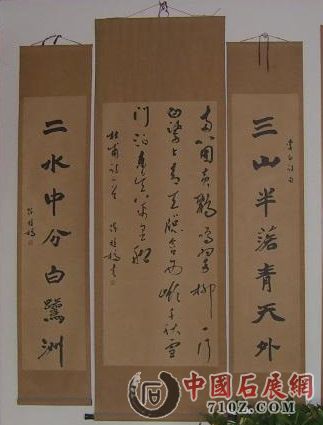 三山半落青天外
两個黄鹂鸣翠柳一行
白鹭上青天窗含西岭千秋雪
门泊东吴万里船
杜甫诗一首
二水中分白鷺洲
中國石展網
71OZ.COM